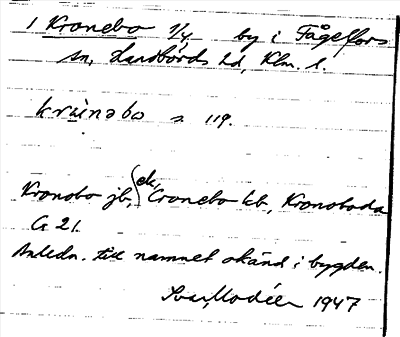 1 Kronebo 1/4 by i Fågelfors
sn, Handbörds hd, Klm. l.
krɯ̀nəbo a 119.
Kronobo jb, ek, Cronebo kb, Kronoboda
G 21.
Anledn. till namnet okänd i bygden.
Ivar Modéer 1947